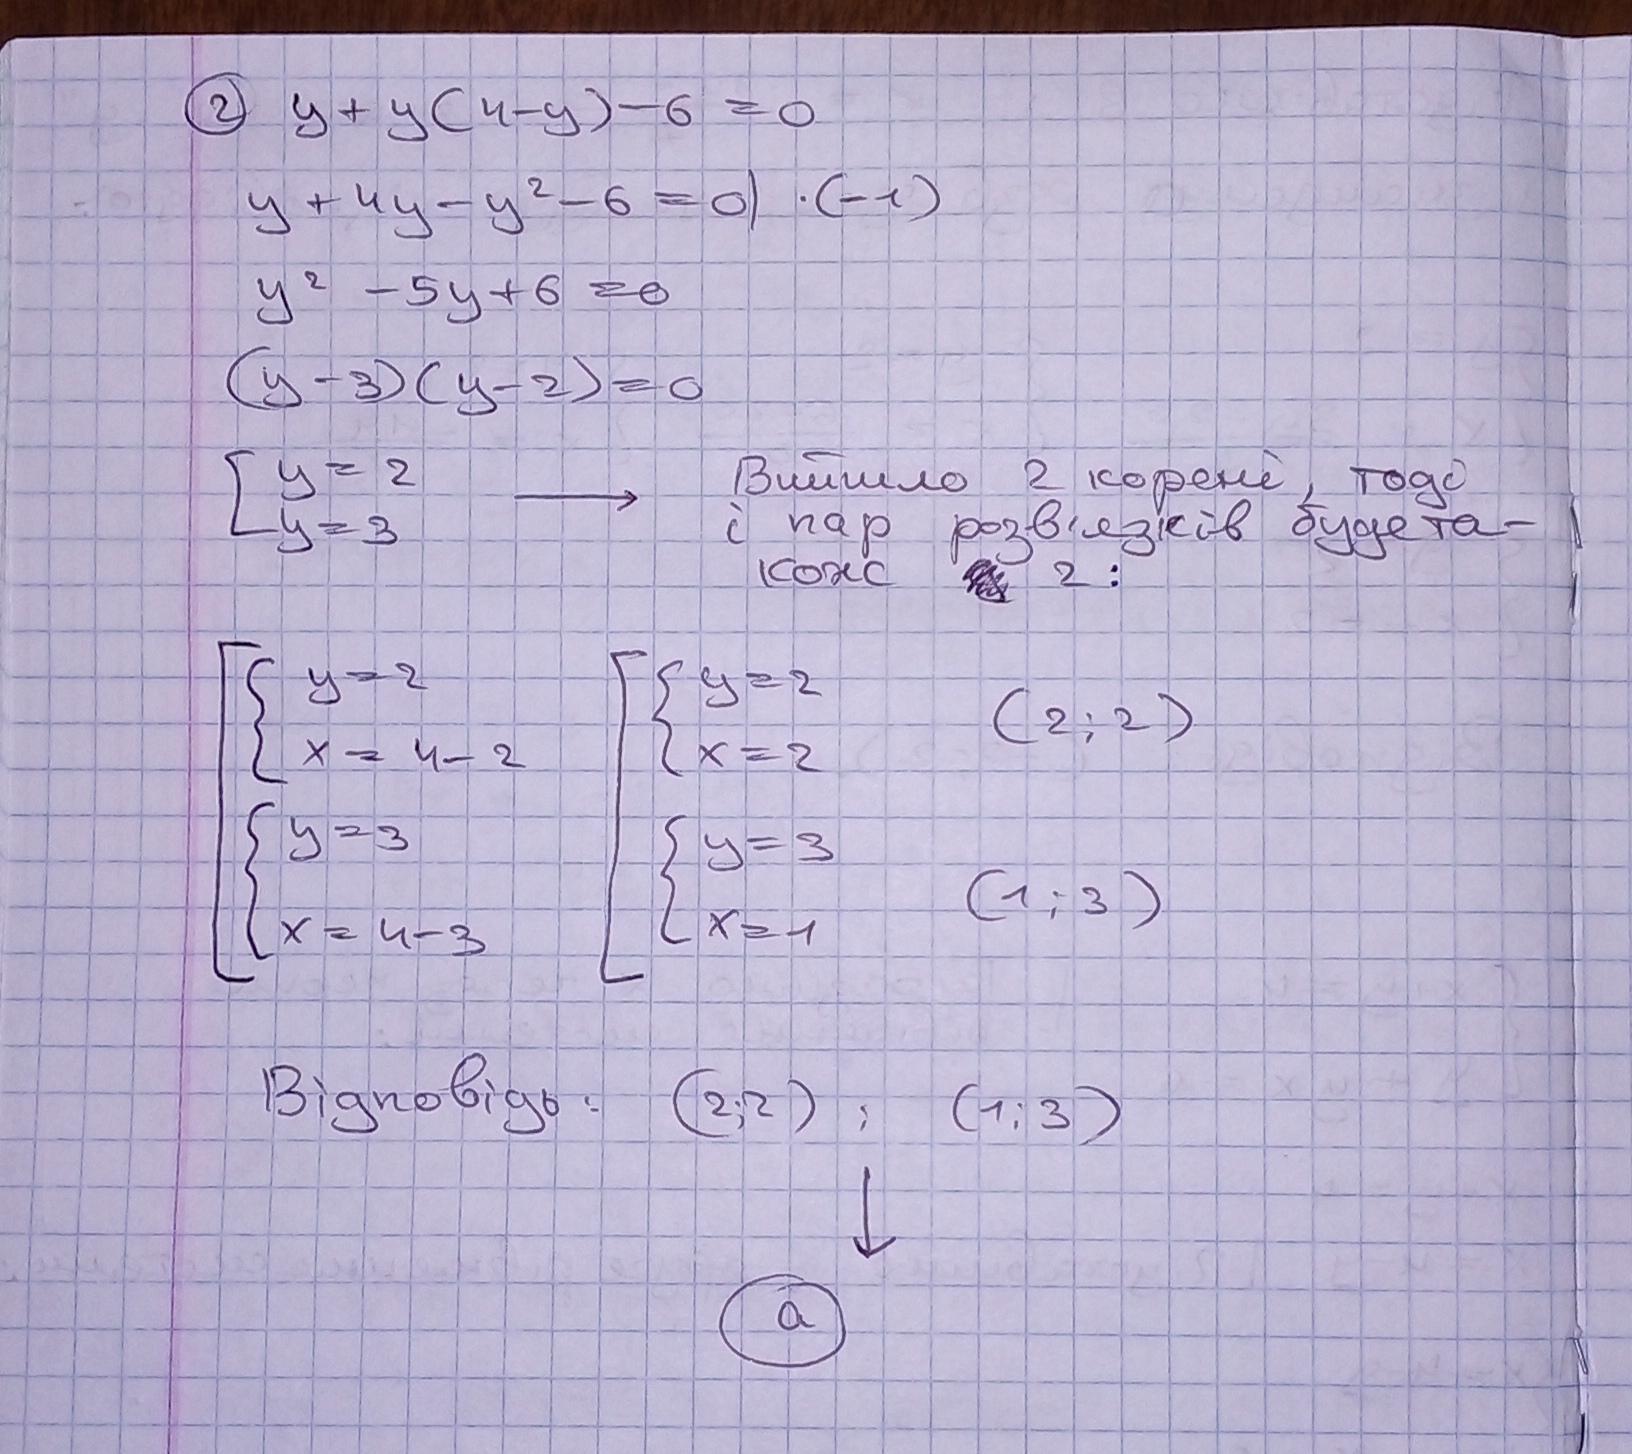 ② y + y(4-y) - 6 = 0
y + 4y - y² - 6 = 0 | ·(-1)
y² - 5y + 6 = 0
(y - 3)(y - 2) = 0
[ y = 2
y = 3 → Вийшло 2 корені, тоді
і пар розв'язків буде та-
кож 2:
[ { y = 2 [ { y = 2 (2; 2)
x = 4 - 2 x = 2
{ y = 3 { y = 3 (1; 3)
x = 4 - 3 x = 1
Відповідь: (2;2) ; (1; 3)
↓
а